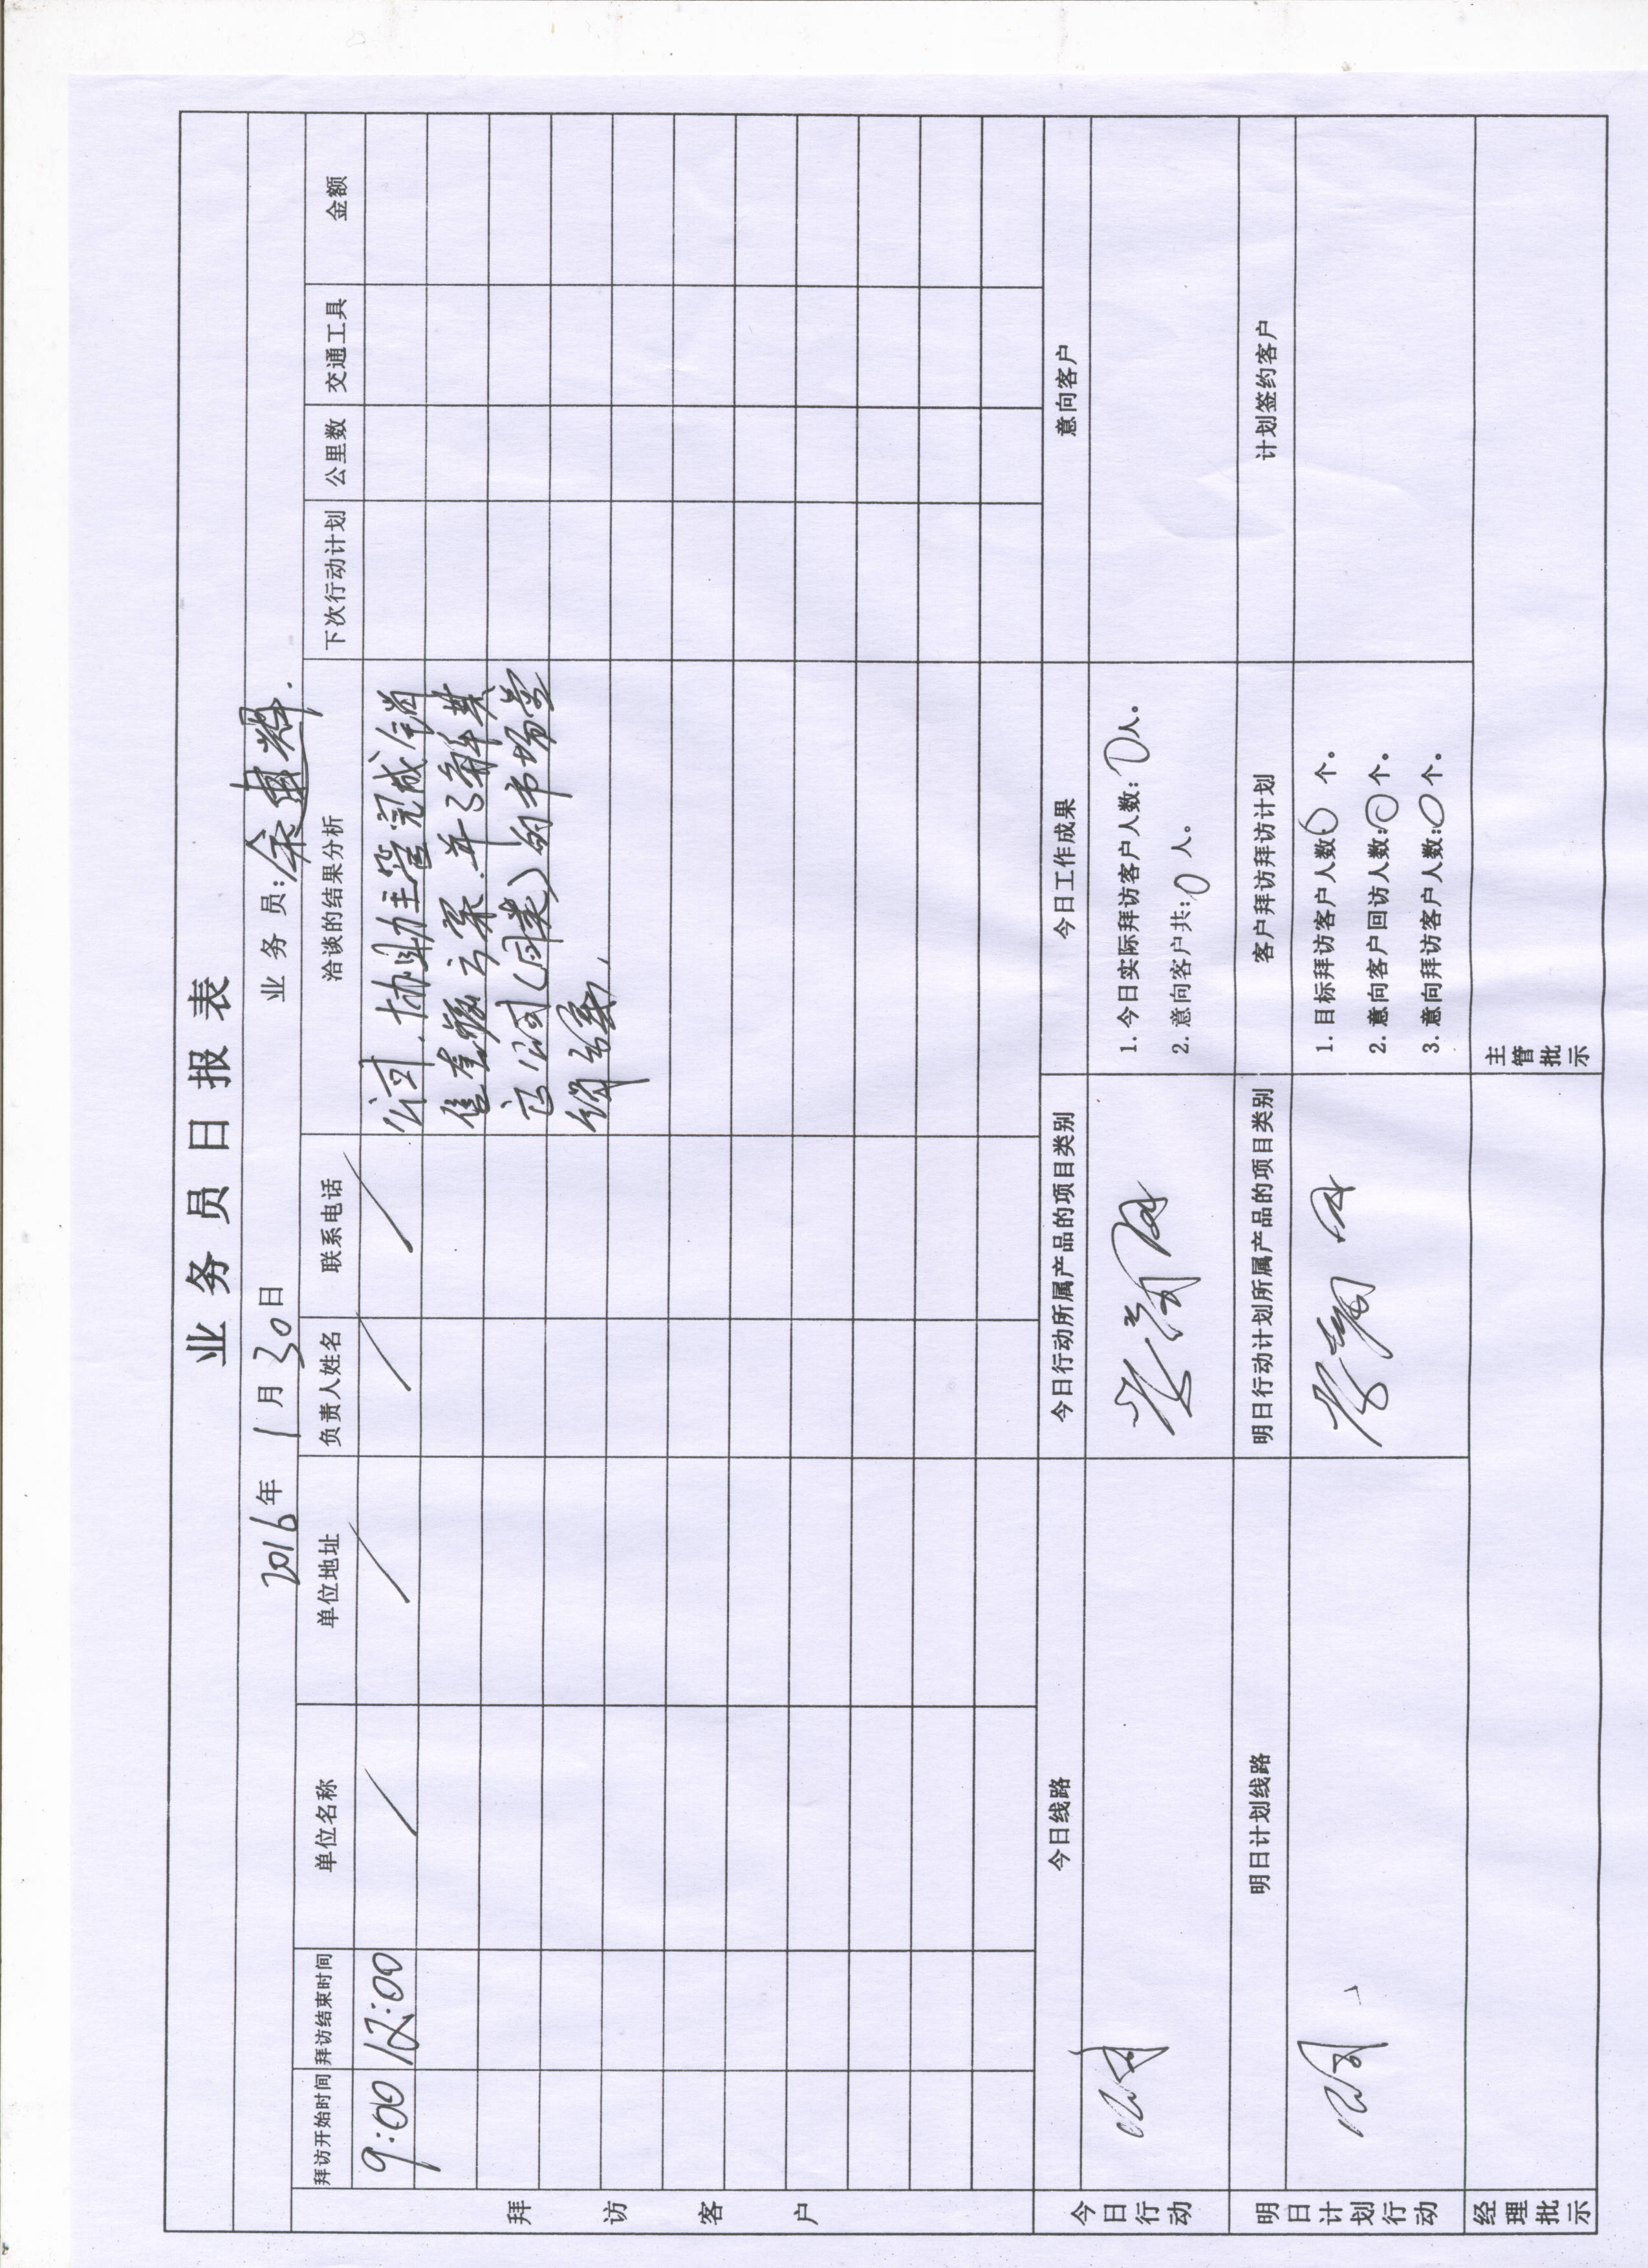 业务员日报表
2016年 1月30日 业务员:余建辉.
拜访客户
拜访开始时间 拜访结束时间 单位名称 单位地址 负责人姓名 联系电话 洽谈的结果分析 下次行动计划 公里数 交通工具 金额
9:00 12:00 / / / / 公司.协助主管完成销
售方案.并了解其
它公司(同类)的市场
今日行动
今日线路 今日行动所属产品的项目类别 今日工作成果 意向客户
公司
1.今日实际拜访客户人数:0人。
2.意向客户共:0人。
明日计划行动
明日计划线路 明日行动计划所属产品的项目类别 客户拜访拜访计划 计划签约客户
公司
1.目标拜访客户人数0个。
2.意向客户回访人数:0个。
3.意向拜访客户人数:0个。
经理批示 主管批示